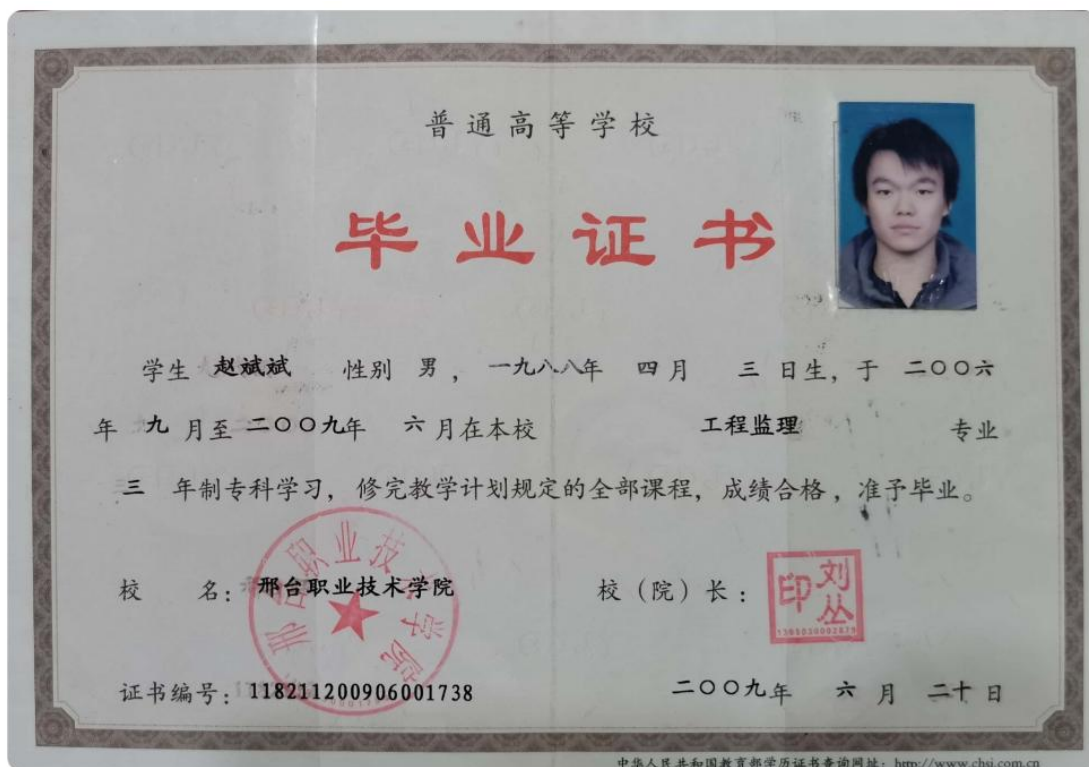 普通高等学校
毕业证书
学生 赵斌斌 性别 男， 一九八八年 四月 三日生，于 二〇〇六
年 九 月至 二〇〇九年 六月在本校 工程监理 专业
三 年制专科学习，修完教学计划规定的全部课程，成绩合格，准予毕业。
校 名：邢台职业技术学院 校（院）长：
邢台职业技术学院
刘丛印
证书编号：118211200906001738 二〇〇九年 六月 二十日
中华人民共和国教育部学历证书查询网址：http://www.chsi.com.cn